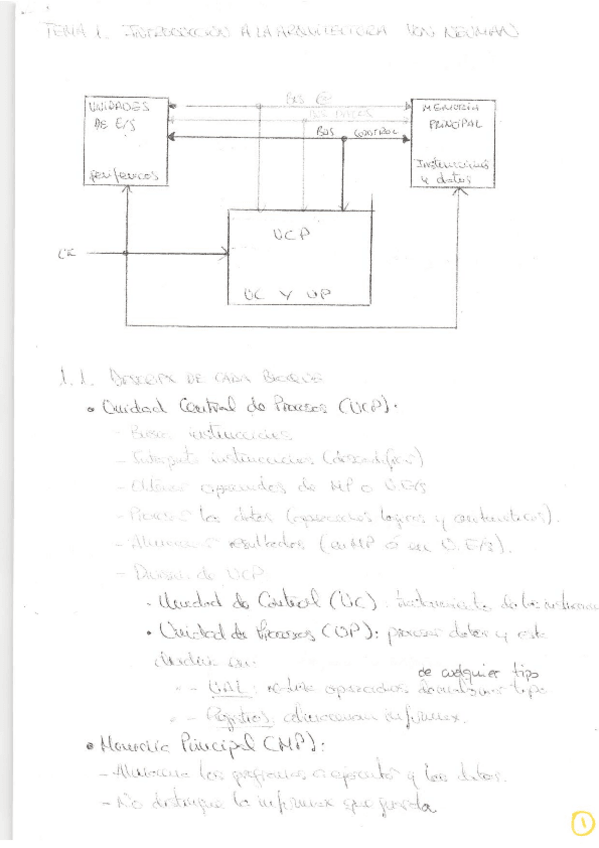 TEMA 1. INTRODUCCIÓN A LA ARQUITECTURA VON NEUMAN
BUS @
BUS DATOS
BUS CONTROL
UNIDADES
DE E/S
periféricos
MEMORIA
PRINCIPAL
Instrucciones
y datos
UCP
UC Y UP
CK
1.1. DE CADA BLOQUE
• Unidad Central de Proceso (UCP):
- Busca instrucciones
- Interpreta instrucciones (descodifica)
- Obtiene operandos de MP o U.E/S
- Procesa los datos (operaciones lógicas y aritméticas).
- Almacena resultados (en MP ó en U.E/S).
- División de UCP
• Unidad de Control (UC):
• Unidad de Proceso (UP): procesa datos y este
de cualquier tipo
- UAL: operaciones de cualquier tipo
- Registros, almacenan informax.
• Memoria Principal (MP):
- Almacena los programas a ejecutar y los datos.
- No distingue la informax que guarda
1